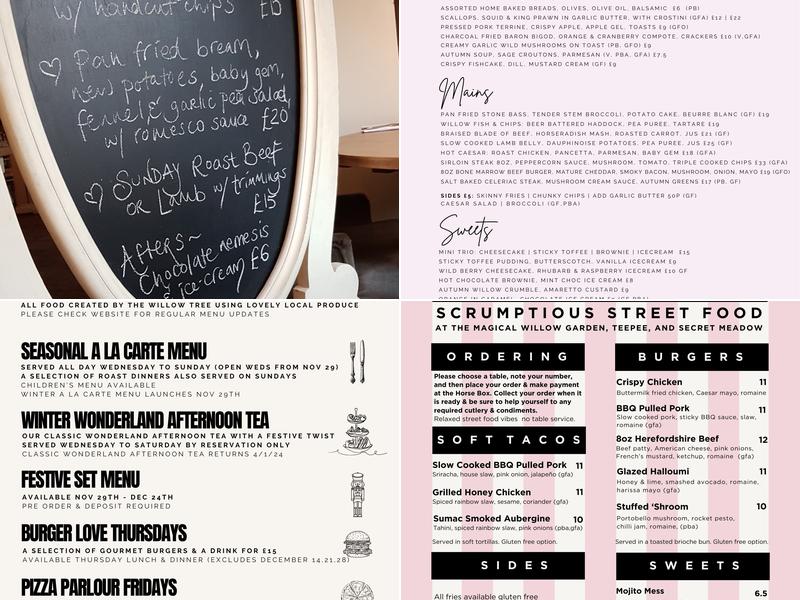 w/ handcut chips £6
Pan fried bream,
new potatoes, baby gem,
fennel & garlic pea salad,
w/ romesco sauce £20
SUNDAY Roast Beef
OR Lamb w/ trimmings
£15
Afters~
Chocolate nemesis
& ice cream £6
ASSORTED HOME BAKED BREADS, OLIVES, OLIVE OIL, BALSAMIC £6 (PB)
SCALLOPS, SQUID & KING PRAWN IN GARLIC BUTTER, WITH CROSTINI (GFA) £12 | £22
PRESSED PORK TERRINE, CRISPY APPLE, APPLE GEL, TOASTS £9 (GFO)
CHARCOAL FRIED BARON BIGOD, ORANGE & CRANBERRY COMPOTE, CRACKERS £10 (V,GFA)
CREAMY GARLIC WILD MUSHROOMS ON TOAST (PB, GFO) £9
AUTUMN SOUP, SAGE CROUTONS, PARMESAN (V, PBA, GFA) £7.5
CRISPY FISHCAKE, DILL, MUSTARD CREAM (GF) £9
Mains
PAN FRIED STONE BASS, TENDER STEM BROCCOLI, POTATO CAKE, BEURRE BLANC (GF) £19
WILLOW FISH & CHIPS: BEER BATTERED HADDOCK, PEA PUREE, TARTARE £19
BRAISED BLADE OF BEEF, HORSERADISH MASH, ROASTED CARROT, JUS £21 (GF)
SLOW COOKED LAMB BELLY, DAUPHINOISE POTATOES, PEA PUREE, JUS £25 (GF)
HOT CAESAR: ROAST CHICKEN, PANCETTA, PARMESAN, BABY GEM £18 (GFA)
SIRLOIN STEAK 8OZ, PEPPERCORN SAUCE, MUSHROOM, TOMATO, TRIPLE COOKED CHIPS £33 (GFA)
8OZ BONE MARROW BEEF BURGER, MATURE CHEDDAR, SMOKY BACON, MUSHROOM, ONION, MAYO £19 (GFO)
SALT BAKED CELERIAC STEAK, MUSHROOM CREAM SAUCE, AUTUMN GREENS £17 (PB, GF)
SIDES £5: SKINNY FRIES | CHUNKY CHIPS | ADD GARLIC BUTTER 50P (GF)
CAESAR SALAD | BROCCOLI (GF,PBA)
Sweets
MINI TRIO: CHEESECAKE | STICKY TOFFEE | BROWNIE | ICECREAM £15
STICKY TOFFEE PUDDING, BUTTERSCOTCH, VANILLA ICECREAM £9
WILD BERRY CHEESECAKE, RHUBARB & RASPBERRY ICECREAM £10 GF
HOT CHOCOLATE BROWNIE, MINT CHOC ICE CREAM £8
AUTUMN WILLOW CRUMBLE, AMARETTO CUSTARD £9
ALL FOOD CREATED BY THE WILLOW TREE USING LOVELY LOCAL PRODUCE
PLEASE CHECK WEBSITE FOR REGULAR MENU UPDATES
SEASONAL A LA CARTE MENU
SERVED ALL DAY WEDNESDAY TO SUNDAY (OPEN WEDS FROM NOV 29)
A SELECTION OF ROAST DINNERS ALSO SERVED ON SUNDAYS
CHILDREN'S MENU AVAILABLE
WINTER A LA CARTE MENU LAUNCHES NOV 29TH
WINTER WONDERLAND AFTERNOON TEA
OUR CLASSIC WONDERLAND AFTERNOON TEA WITH A FESTIVE TWIST
SERVED WEDNESDAY TO SATURDAY BY RESERVATION ONLY
CLASSIC WONDERLAND AFTERNOON TEA RETURNS 4/1/24
FESTIVE SET MENU
AVAILABLE NOV 29TH - DEC 24TH
PRE ORDER & DEPOSIT REQUIRED
BURGER LOVE THURSDAYS
A SELECTION OF GOURMET BURGERS & A DRINK FOR £15
AVAILABLE THURSDAY LUNCH & DINNER (EXCLUDES DECEMBER 14,21,28)
PIZZA PARLOUR FRIDAYS
SCRUMPTIOUS STREET FOOD
AT THE MAGICAL WILLOW GARDEN, TEEPEE, AND SECRET MEADOW
ORDERING
Please choose a table, note your number,
and then place your order & make payment
at the Horse Box. Collect your order when it
is ready & be sure to help yourself to any
required cutlery & condiments.
Relaxed street food vibes no table service.
SOFT TACOS
Slow Cooked BBQ Pulled Pork 11
Sriracha, house slaw, pink onion, jalapeño (gfa)
Grilled Honey Chicken 11
Spiced rainbow slaw, sesame, coriander (gfa)
Sumac Smoked Aubergine 10
Tahini, spiced rainbow slaw, pink onions (pba,gfa)
Served in soft tortillas. Gluten free option.
SIDES
All fries available gluten free
BURGERS
Crispy Chicken 11
Buttermilk fried chicken, Caesar mayo, romaine
BBQ Pulled Pork 11
Slow cooked pork, sticky BBQ sauce, slaw,
romaine (gfa)
8oz Herefordshire Beef 12
Beef patty, American cheese, pink onions,
French's mustard, ketchup, romaine (gfa)
Glazed Halloumi 11
Honey & lime, smashed avocado, romaine,
harissa mayo (gfa)
Stuffed 'Shroom 10
Portobello mushroom, rocket pesto,
chilli jam, romaine, (pba)
Served in a toasted brioche bun. Gluten free option.
SWEETS
Mojito Mess 6.5